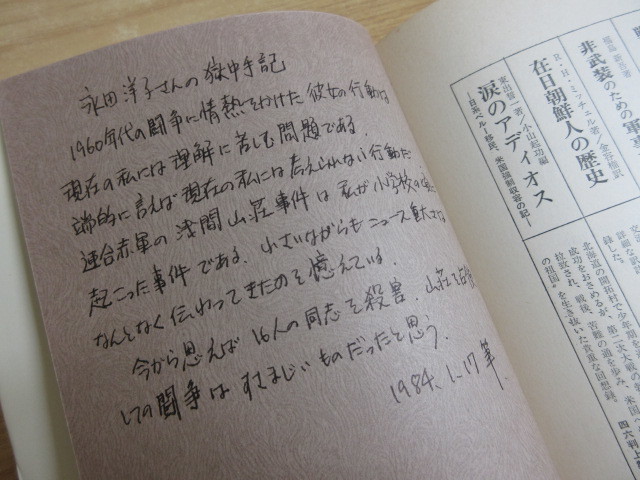 永田洋子さんの獄中手記
1960年代の闘争に情熱をかけた彼女の行動は
現在の私には理解に苦しむ問題である.
端的に言えば現在の私には考えられない行動だ
連合赤軍の浅間山荘事件は私が小学校の
起こった事件である. 小さいながらもニュース重大さは
なんとなく伝わってきたのを憶えている.
今から思えば 16人の同志を殺害. 山荘を占
しての闘争は すさまじいものだったと思う.
1984. 1. 17 筆.
非武装のための
R・H・ミッチェル著/金容権訳
在日朝鮮人の歴史
東出誓一著/小山起功編
涙のアディオス
―日系ペルー移民、米国強制収容の記―
北海道の開拓村で少年
成功をおさめるが、第二次大戦
拉致され、戦後、苦難の道を歩み、米国
の祖国”を生き抜いた貴重な回想録。
四六判上